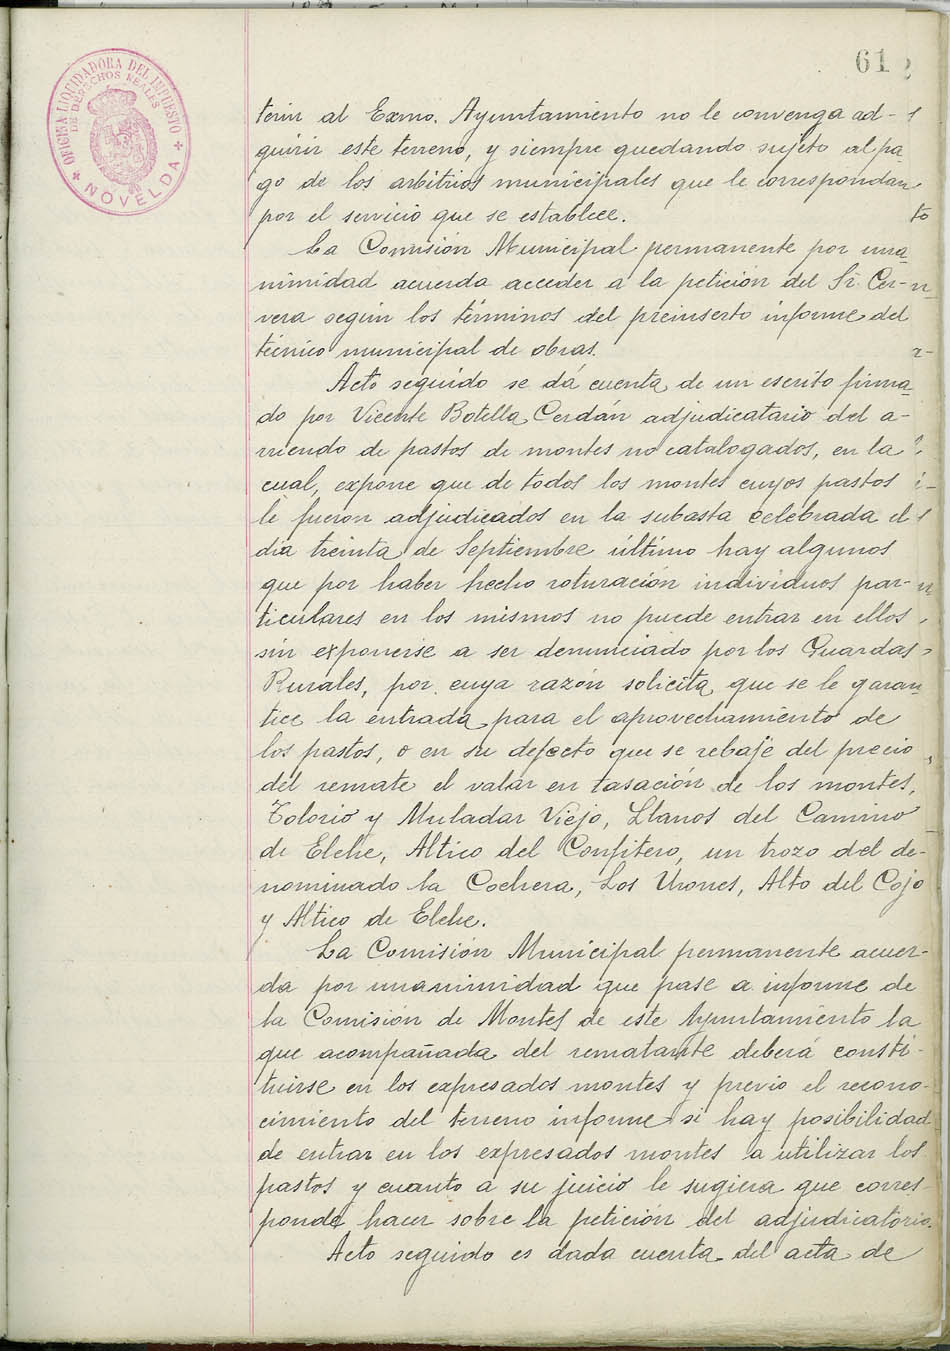 61
OFICINA LIQUIDADORA DEL IMPUESTO
DE DERECHOS REALES
NOVELDA
terin al Exmo. Ayuntamiento no le convenga ad-
quirir este terreno, y siempre quedando sujeto al pa-
go de los arbitrios municipales que le correspondan
por el servicio que se establece.
La Comisión Municipal permanente por una-
nimidad acuerda acceder á la petición del Sr. Cer-
vera según los términos del preinserto informe del
técnico municipal de obras.
Acto seguido se dá cuenta de un escrito firma-
do por Vicente Botella Cerdán adjudicatario del a-
rriendo de pastos de montes no catalogados, en la
cual, expone que de todos los montes cuyos pastos
le fueron adjudicados en la subasta celebrada el
día treinta de Septiembre último hay algunos
que por haber hecho roturación individuos par-
ticulares en los mismos no puede entrar en ellos
sin exponerse a ser denunciado por los Guardas
Rurales, por cuya razón solicita que se le garan-
tice la entrada para el aprovechamiento de
los pastos, o en su defecto que se rebaje del precio
del remate el valar en tasación de los montes,
Tolorio y Muladar Viejo, Llanos del Camino
de Elche, Altico del Confitero, un trozo del de-
nominado la Cochera, Los Urones, Alto del Cojo
y Altico de Elche.
La Comisión Municipal permanente acuer-
da por unanimidad que pase a informe de
la Comisión de Montes de este Ayuntamiento la
que acompañada del rematante deberá consti-
tuirse en los expresados montes y previo el recono-
cimiento del terreno informe si hay posibilidad
de entrar en los expresados montes a utilizar los
pastos y cuanto a su juicio le sugiera que corres-
ponde hacer sobre la petición del adjudicatorio.
Acto seguido es dada cuenta del acta de